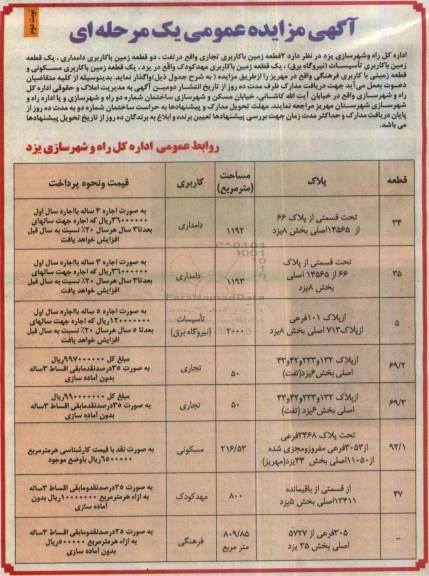 نوبت دوم
آگهی مزایده عمومی یک مرحله ای
اداره کل راه وشهرسازی یزد در نظر دارد ۲قطعه زمین باکاربری تجاری واقع درتفت ، دو قطعه زمین باکاربری دامداری ، یک قطعه
زمین باکاربری تأسیسات (نیروگاه برق) ، یک قطعه زمین باکاربری مهدکودک واقع در یزد ، یک قطعه زمین باکاربری مسکونی و
قطعه زمینی با کاربری فرهنگی واقع در مهریز را ازطریق مزایده ( به شرح جدول ذیل)واگذار نماید. بدینوسیله از کلیه متقاضیان
دعوت بعمل می آید جهت دریافت مدارک ظرف مدت ده روز از تاریخ انتشار دومین آگهی به مدیریت املاک و حقوقی اداره کل
راه و شهرسازی واقع در خیابان آیت الله کاشانی، خیابان مسکن و شهرسازی ساختمان شماره دو راه و شهرسازی و یا اداره راه و
شهرسازی شهرستان مهریز مراجعه نمایند. مهلت تحویل مدارک و پیشنهادها به حراست ساختمان شماره دو به مدت ده روز از
پایان دریافت مدارک و حداکثر مدت زمان جهت بررسی پیشنهادها تعیین برنده و ابلاغ به برندگان ده روز از تاریخ تحویل پیشنهادها
می باشد.
روابط عمومی اداره کل راه و شهرسازی یزد
قطعه پلاک مساحت (مترمربع) کاربری قیمت ونحوه پرداخت
۳۴ تحت قسمتی از پلاک ۶۶ از ۱۴۵۶۵اصلی بخش ۸یزد ۱۱۹۲ دامداری به صورت اجاره ۳ ساله بااجاره سال اول ۳۶۰۰۰۰۰۰ریال که اجاره جهت سالهای بعدتا۳ سال هرسال ۲۰٪ نسبت به سال قبل افزایش خواهد یافت
۳۵ تحت قسمتی از پلاک ۶۶ از ۱۴۵۶۵ اصلی بخش ۸یزد ۱۱۹۳ دامداری به صورت اجاره ۳ ساله بااجاره سال اول ۳۶۰۰۰۰۰۰ریال که اجاره جهت سالهای بعدتا۳ سال هرسال ۲۰٪ نسبت به سال قبل افزایش خواهد یافت
۵ ازپلاک ۱۰۱فرعی ازپلاک۷۱۳ اصلی بخش ۸یزد ۲۰۰۰ تأسیسات (نیروگاه برق) به صورت اجاره ۵ ساله بااجاره سال اول ریال که اجاره جهت سالهای بعدتا ۵ سال هرسال ۲۰٪ نسبت به سال قبل افزایش خواهد یافت
۶۹/۲ ازپلاک ۱۳۲و۲۳۳و۴۲و۴۳ اصلی بخش۶یزد(تفت) ۵۰ تجاری مبلغ کل ریال به صورت ۳۵درصدنقدمابقی اقساط ۳ساله بدون آماده سازی
۶۹/۳ ازپلاک ۱۳۲و۲۳۳و۴۲و۴۳ اصلی بخش۶یزد (تفت) ۵۰ تجاری مبلغ کل ریال به صورت ۳۵درصدنقدمابقی اقساط ۳ساله بدون آماده سازی
۹۲/۱ تحت پلاک ۳۴۶۸فرعی از۳۰۵۳فرعی مفروزومجزی شده از۱۱۰۵۰اصلی بخش ۳۴یزد(مهریز) ۲۱۶/۵۳ مسکونی به صورت نقد با قیمت کارشناسی هرمترمربع ۶۵۰۰۰۰۰ریال باوضع موجود
۴۷ از قسمتی از باقیمانده ۱۳۴۱۱اصلی بخش ۵یزد ۸۰۰ مهدکودک به صورت ۲۵درصدنقدومابقی اقساط ۳ساله به ازاء هرمترمربع ریال بدون آماده سازی
- ۳۰۵فرعی از ۵۷۲۷ اصلی بخش ۳۵ یزد ۸۰۹/۸۵ متر مربع فرهنگی به صورت ۲۵درصدنقدومابقی اقساط ۳ساله به ازاء هرمترمربع ریال بدون آماده سازی
ParsNamadData